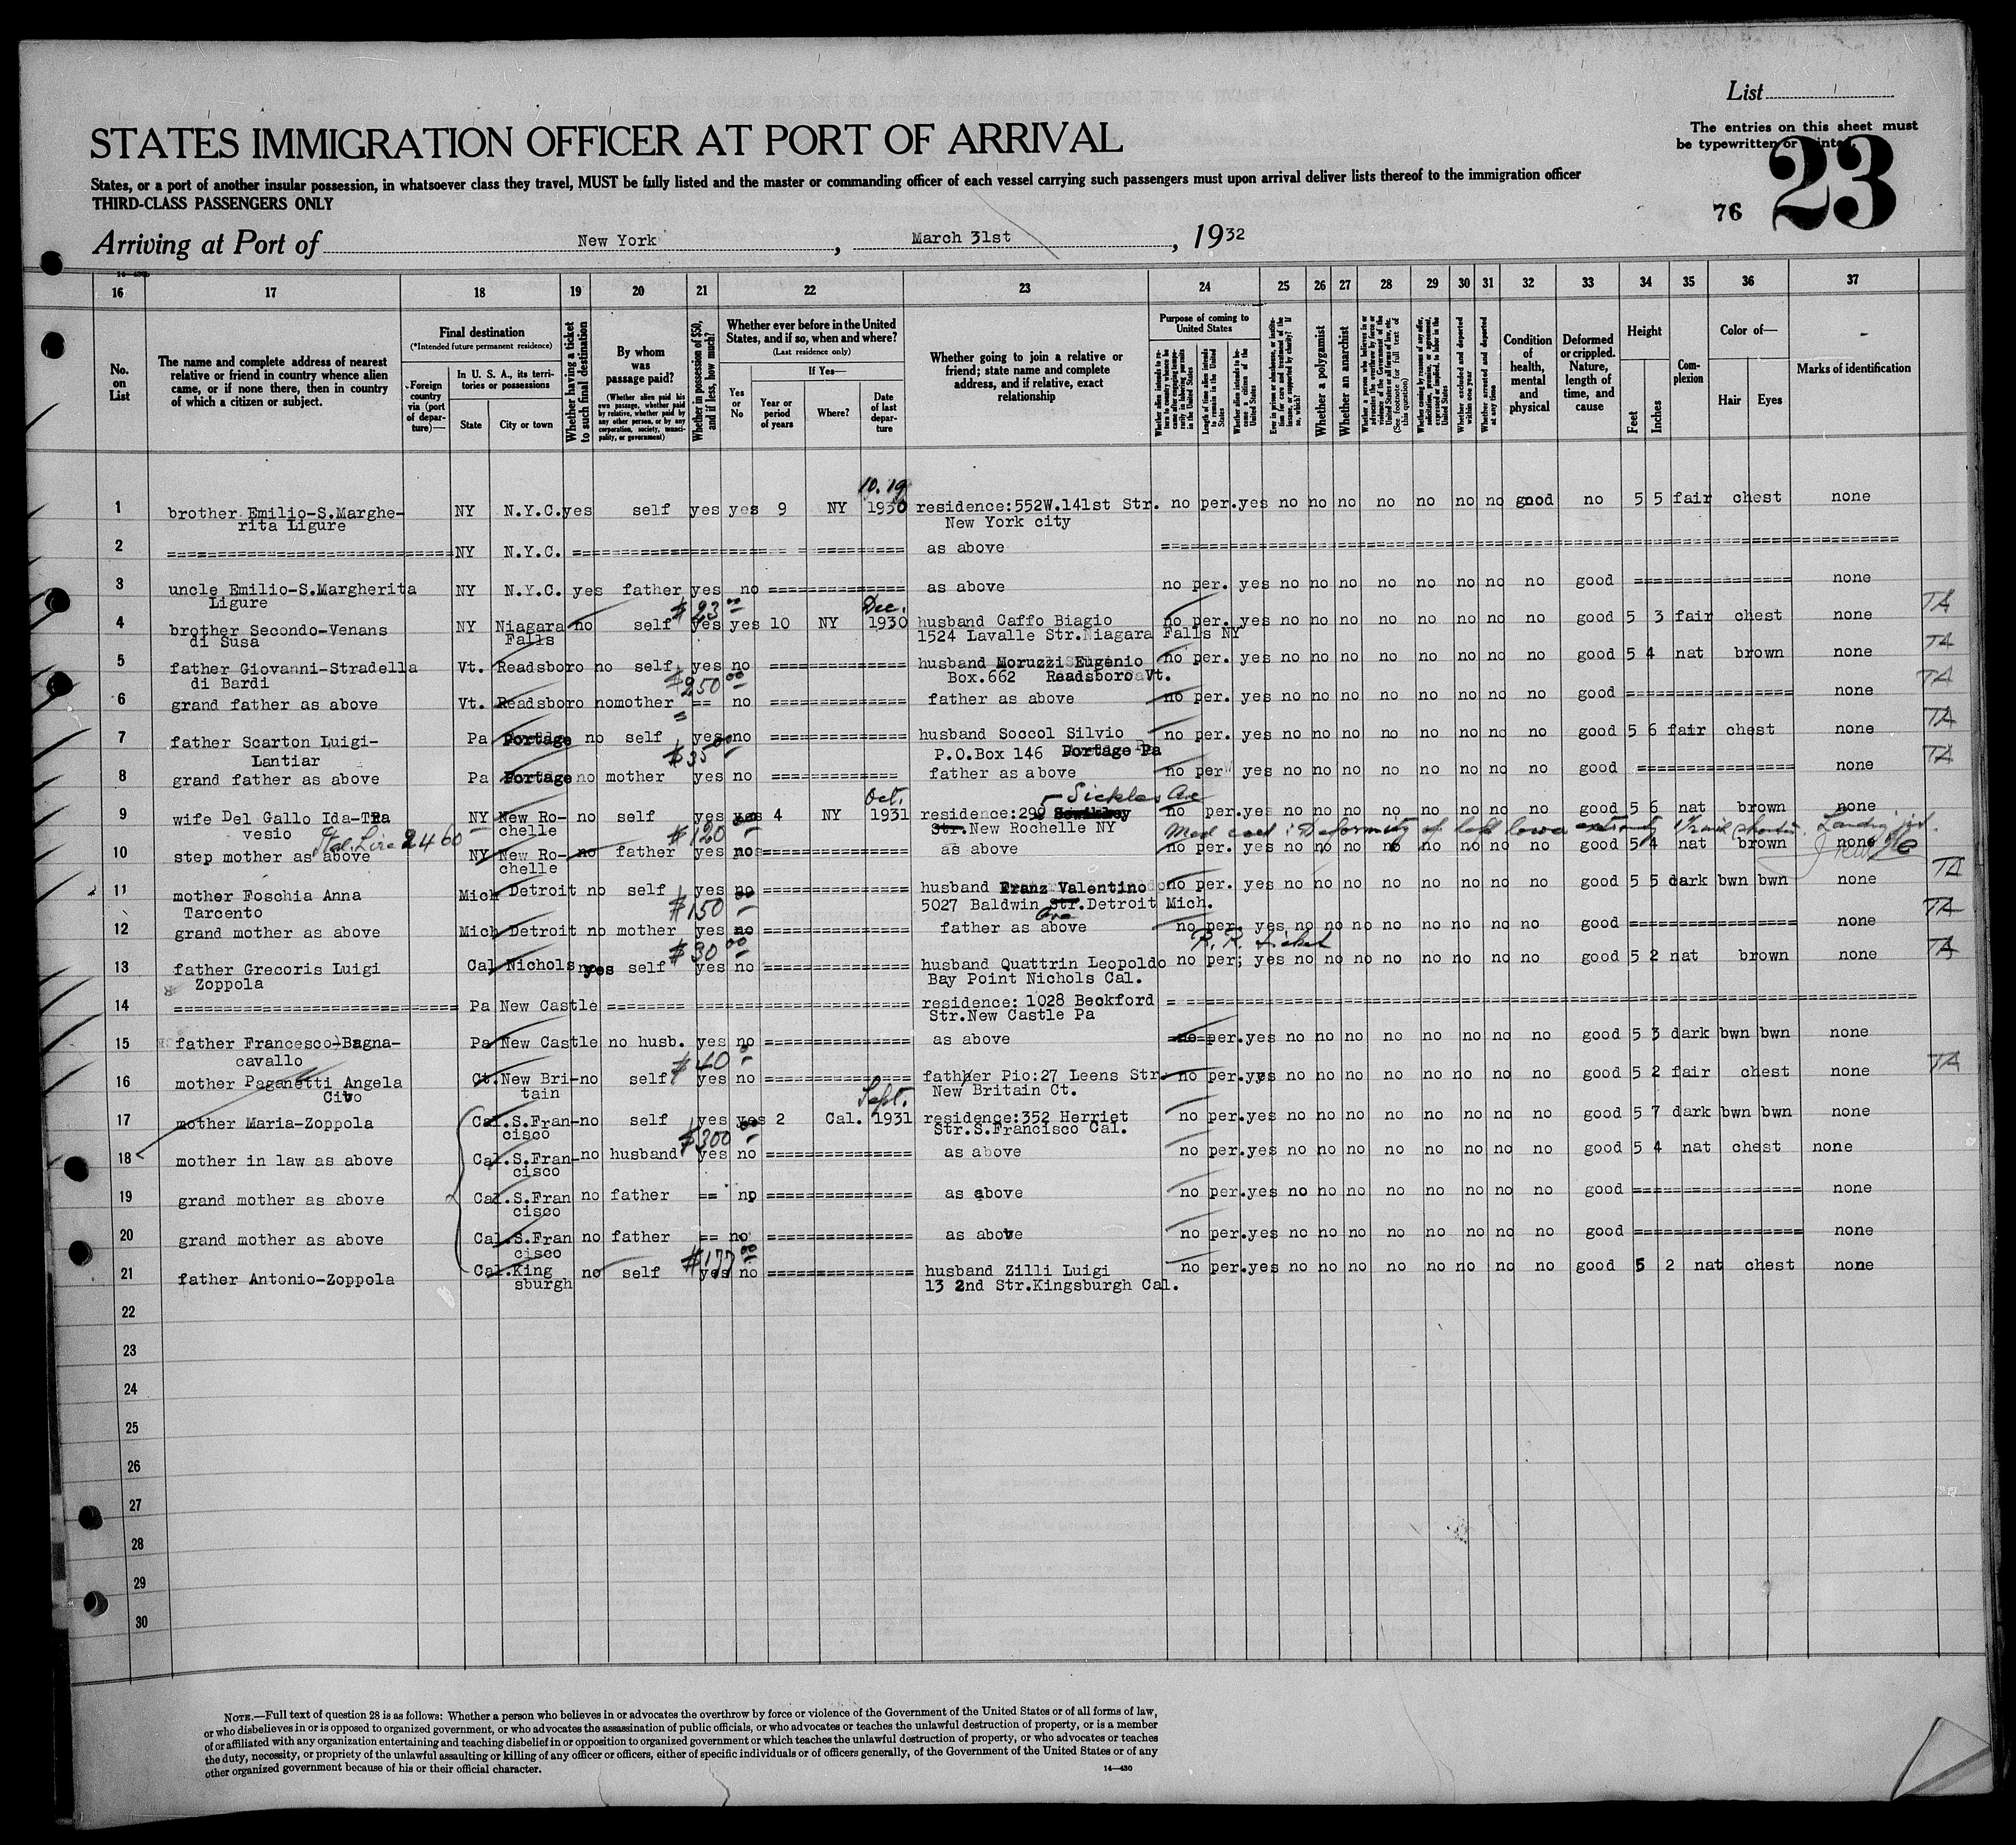 List
The entries on this sheet must
be typewritten or printed.
23
76
STATES IMMIGRATION OFFICER AT PORT OF ARRIVAL
States, or a port of another insular possession, in whatsoever class they travel, MUST be fully listed and the master or commanding officer of each vessel carrying such passengers must upon arrival deliver lists thereof to the immigration officer
THIRD-CLASS PASSENGERS ONLY
Arriving at Port of New York, March 31st, 1932
16 17 18 19 20 21 22 23 24 25 26 27 28 29 30 31 32 33 34 35 36 37
No. on List
The name and complete address of nearest relative or friend in country whence alien came, or if none there, then in country of which a citizen or subject.
Final destination
(*Intended future permanent residence)
Foreign country via (port of departure)—
In U. S. A., its territories or possessions
State
City or town
Whether having a ticket to such final destination
By whom was passage paid?
(Whether alien paid his own passage, whether paid by relative, whether paid by any other person, or by any corporation, society, municipality, or government)
Whether in possession of $50, and if less, how much?
Whether ever before in the United States, and if so, when and where?
(Last residence only)
Yes or No
If Yes—
Year or period of years
Where?
Date of last departure
Whether going to join a relative or friend; state name and complete address, and if relative, exact relationship
Purpose of coming to United States
Whether alien intends to return to country whence he came after engaging temporarily in laboring pursuits in the United States
Length of time alien intends to remain in the United States
Whether alien intends to become a citizen of the United States
Ever in prison or almshouse, or institution for care and treatment of the insane, or supported by charity? If so, which?
Whether a polygamist
Whether an anarchist
Whether a person who believes in or advocates the overthrow by force or violence of the Government of the United States or all forms of law, etc. (See footnote for full text of this question)
Whether coming by reason of any offer, solicitation, promise, or agreement, expressed or implied, to labor in the United States
Whether excluded and deported within one year
Whether arrested and deported at any time
Condition of health, mental and physical
Deformed or crippled. Nature, length of time, and cause
Height
Feet
Inches
Complexion
Color of—
Hair
Eyes
Marks of identification
10.19
1 brother Emilio-S.Marghe- NY N.Y.C. yes self yes yes 9 NY 1930 residence:552W.141st Str. no per. yes no no no no no no no good no 5 5 fair chest none
rita Ligure New York city
2 ==== NY N.Y.C. ==== as above ====
3 uncle Emilio-S.Margherita NY N.Y.C. yes father yes no ==== as above no per. yes no no no no no no no no good ==== none
Ligure $23 00 Dec. TA
4 brother Secondo-Venans NY Niagara no self yes yes 10 NY 1930 husband Caffo Biagio no per. yes no no no no no no no no good 5 3 fair chest none
di Susa Falls 1524 Lavalle Str.Niagara Falls NY TA
5 father Giovanni-Stradella Vt. Readsboro no self yes no ==== husband Moruzzi Eugenio no per. yes no no no no no no no no good 5 4 nat brown none
di Bardi $250 00 Box.662 Readsboro Vt. TA
6 grand father as above Vt. Readsboro no mother == no ==== father as above no per. yes no no no no no no no no good ==== none
TA
7 father Scarton Luigi- Pa Portage no self yes no ==== husband Soccol Silvio no per. yes no no no no no no no no good 5 6 fair chest none
Lantiar $35 00 P.O.Box 146 Portage Pa TA
8 grand father as above Pa Portage no mother yes no ==== father as above no per yes no no no no no no no no good ==== none
Oct. Sickles Ave
9 wife Del Gallo Ida-Tra NY New Ro- no self yes yes 4 NY 1931 residence:299 no per. yes no no no no no no no no good 5 6 nat brown none
vesio Ital. Lire 2460 chelle $120 Str.New Rochelle NY Med cert: Deformity of left lower extremity
10 step mother as above NY New Ro- no father yes no ==== as above no per. yes no no no no no no no no good 5 4 nat brown none
chelle
11 mother Foschia Anna Mich Detroit no self yes no ==== husband Franz Valentino no per. yes no no no no no no no no good 5 5 dark bwn bwn none TA
Tarcento $150 5027 Baldwin Str. Detroit Mich.
Ave
12 grand mother as above Mich Detroit no mother yes no ==== father as above no per. yes no no no no no no no no good ==== none TA
$30 00 R.R. ticket
13 father Grecoris Luigi Cal Nichols no yes self yes no ==== husband Quattrin Leopoldo no per; yes no no no no no no no no good 5 2 nat brown none TA
Zoppola Bay Point Nichols Cal.
14 ==== Pa New Castle ==== residence: 1028 Beckford ====
Str.New Castle Pa
15 father Francesco-Bagna- Pa New Castle no husb. yes no ==== as above no per. yes no no no no no no no no good 5 3 dark bwn bwn none
cavallo $40
16 mother Paganetti Angela Ct. New Bri- no self yes no ==== fathher Pio:27 Leens Str. no per. yes no no no no no no no no good 5 2 fair chest none TA
Civo tain New Britain Ct.
Sept.
17 mother Maria-Zoppola Cal.S.Fran- no self yes yes 2 Cal. 1931 residence:352 Herriet no per. yes no no no no no no no no good 5 7 dark bwn bwn none
cisco $300 Str.S.Francisco Cal.
18 mother in law as above Cal.S.Fran- no husband yes no ==== as above no per. yes no no no no no no no no good 5 4 nat chest none
cisco
19 grand mother as above Cal.S.Fran no father == no ==== as above no per. yes no no no no no no no no good ==== none
cisco
20 grand mother as above Cal.S.Fran no father == no ==== as above no per. yes no no no no no no no no good ==== none
cisco $177 00
21 father Antonio-Zoppola Cal. King no self yes no ==== husband Zilli Luigi no per. yes no no no no no no no no good 5 2 nat chest none
sburgh 13 2nd Str.Kingsburgh Cal.
22
23
24
25
26
27
28
29
30
NOTE.—Full text of question 28 is as follows: Whether a person who believes in or advocates the overthrow by force or violence of the Government of the United States or of all forms of law,
or who disbelieves in or is opposed to organized government, or who advocates the assassination of public officials, or who advocates or teaches the unlawful destruction of property, or is a member
of or affiliated with any organization entertaining and teaching disbelief in or opposition to organized government or which teaches the unlawful destruction of property, or who advocates or teaches
the duty, necessity, or propriety of the unlawful assaulting or killing of any officer or officers, either of specific individuals or of officers generally, of the Government of the United States or of any
other organized government because of his or their official character.
14—430